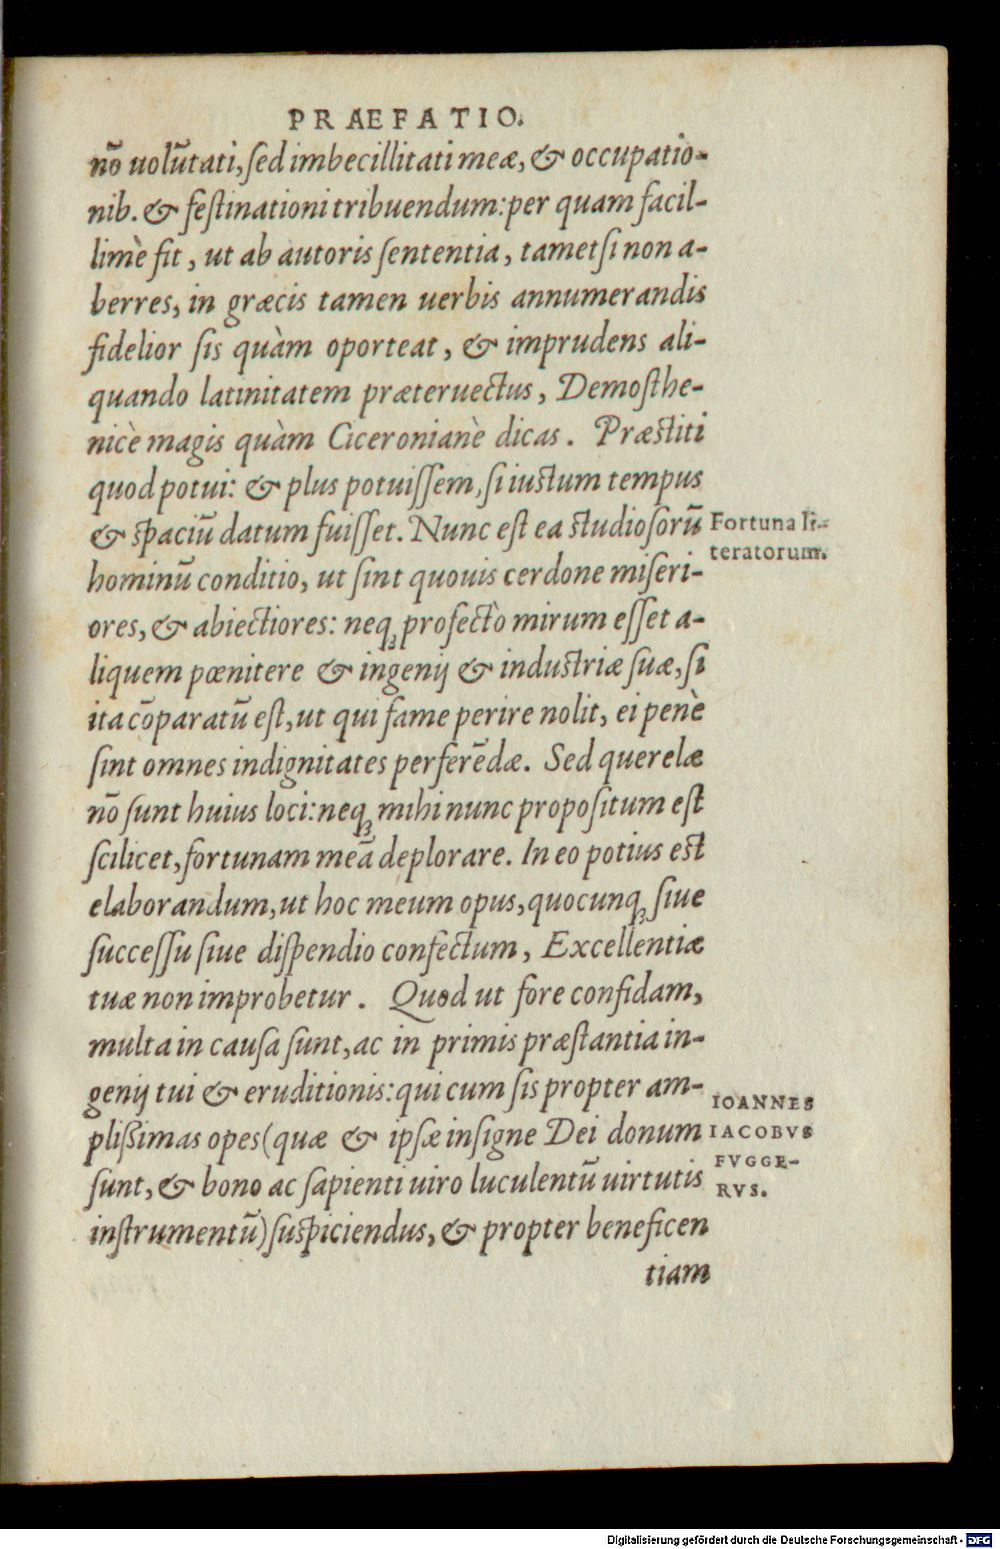 PRAEFATIO.
nõ uolũtati, sed imbecillitati meæ, & occupatio-
nib. & festinationi tribuendum: per quam facil-
limè fit, ut ab autoris sententia, tametsi non a-
berres, in græcis tamen uerbis annumerandis
fidelior sis quàm oporteat, & imprudens ali-
quando latinitatem præteruectus, Demosthe-
nicè magis quàm Ciceronianè dicas. Præstiti
quod potui: & plus potuissem, si iustum tempus
& spaciũ datum fuisset. Nunc est ea studiosorũ
Fortuna li-
teratorum.
hominũ conditio, ut sint quouis cerdone miseri-
ores, & abiectiores: neq; profectò mirum esset a-
liquem pœnitere & ingenij & industriæ suæ, si
ita cõparatũ est, ut qui fame perire nolit, ei penè
sint omnes indignitates perferẽdæ. Sed querelæ
nõ sunt huius loci: neq; mihi nunc propositum est
scilicet, fortunam meã deplorare. In eo potius est
elaborandum, ut hoc meum opus, quocunq; siue
successu siue dispendio confectum, Excellentiæ
tuæ non improbetur. Quod ut fore confidam,
multa in causa sunt, ac in primis præstantia in-
genij tui & eruditionis: qui cum sis propter am-
plißimas opes (quæ & ipsæ insigne Dei donum
sunt, & bono ac sapienti uiro luculentũ uirtutis
instrumentũ) suspiciendus, & propter beneficen
IOANNES
IACOBVS
FVGGE-
RVS.
tiam
Digitalisierung gefördert durch die Deutsche Forschungsgemeinschaft - DFG